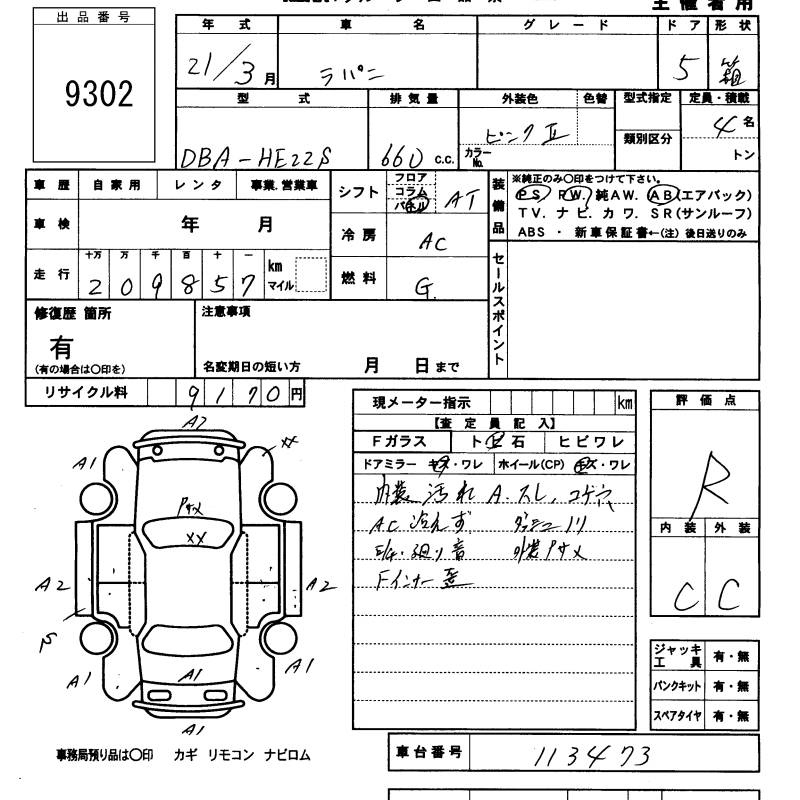 出品番号
9302
主催者用
年式 車名 グレード ドア 形状
21/3月 ラパン 5 箱
型式 排気量 外装色 色替 型式指定 定員・積載
DBA-HE22S 660 c.c. ピンクⅡ カラーNo. 類別区分 4名
トン
車歴 自家用 レンタ 事業・営業車
車検 年 月
走行 十万 万 千 百 十 一 km マイル
2 0 9 8 5 7
シフト フロア コラム パネル AT
冷房 AC
燃料 G.
装備品
※純正のみ〇印をつけて下さい。
PS PW. 純AW. AB(エアバック)
TV. ナビ. カワ. SR(サンルーフ)
ABS ・ 新車保証書←(注) 後日送りのみ
セールスポイント
修復歴 箇所
有
(有の場合は〇印を)
注意事項
名変期日の短い方 月 日まで
リサイクル料 9170円
現メーター指示 km
【査定員記入】
Fガラス ト 石 ヒビワレ
ドアミラー キズ・ワレ ホイール(CP) キズ・ワレ
内装 汚れ A.スレ. コゲ穴
AC 冷えず
E/G. 廻り音 外装 Pサメ
Fインナー
評価点
R
内装 外装
C C
A2
A1
Pサメ
XX
A2
A2
A1
A1
A1
A1
ジャッキ工具 有・無
パンクキット 有・無
スペアタイヤ 有・無
事務局預り品は〇印 カギ リモコン ナビロム
車台番号 113473